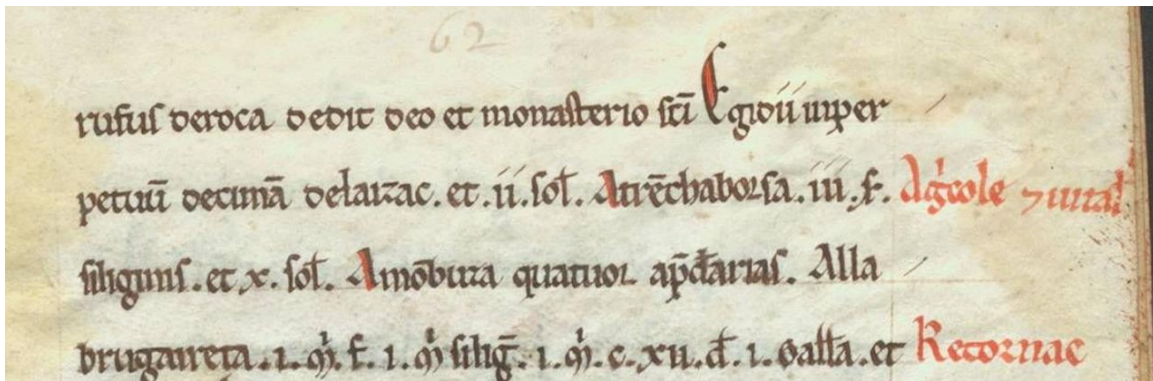 62
rufus deroca dedit deo et monasterio sc̄i Egidii inper
petuū decimā delaizac. et .ii. sol. Atrēchaborsa. iii. f. Agͥcole
siliginis. et x. sol. Amōbuza quatuor ap̄darias. Alla
brugaireta. i. f. i. siliḡ. i. c. xii. d. i. galla. et Retornac